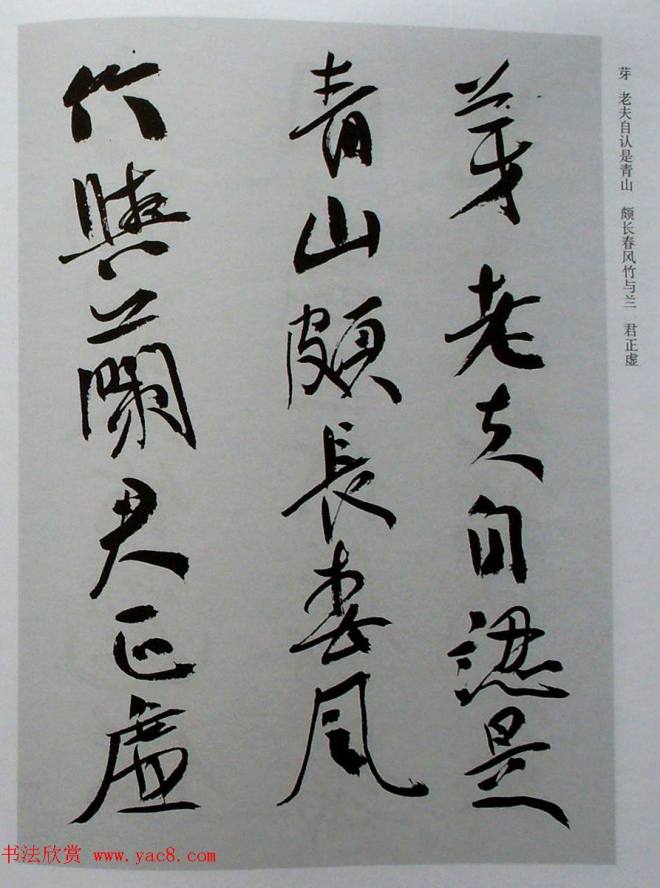 芽老夫自認是
青山頗長春風
竹與蘭君正虛
芽 老夫自认是青山 颇长春风竹与兰 君正虚
书法欣赏 www.yac8.com